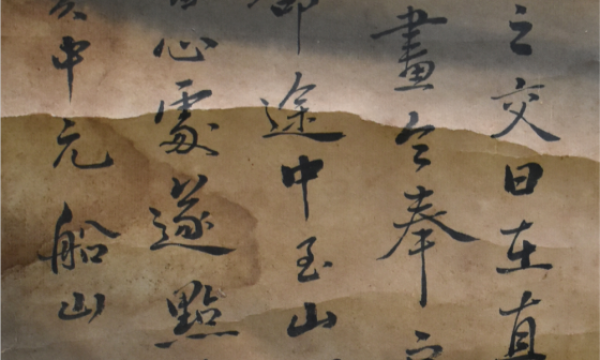 之交日在真
畫令奉
途中至山
心處遂點
中元船山